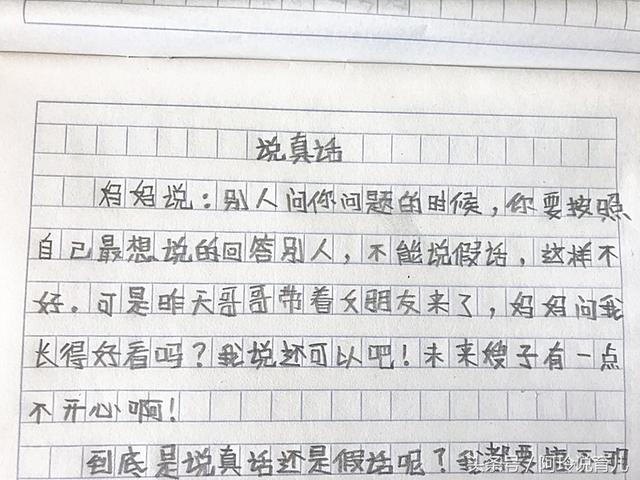 说真话
妈妈说：别人问你问题的时候，你要按照
自己最想说的回答别人，不能说假话，这样不
好。可是昨天哥哥带着女朋友来了，妈妈问我
长得好看吗？我说还可以吧！未来嫂子有一点
不开心啊！
到底是说真话还是假话呢？我都要
头条号/阿玲说育儿